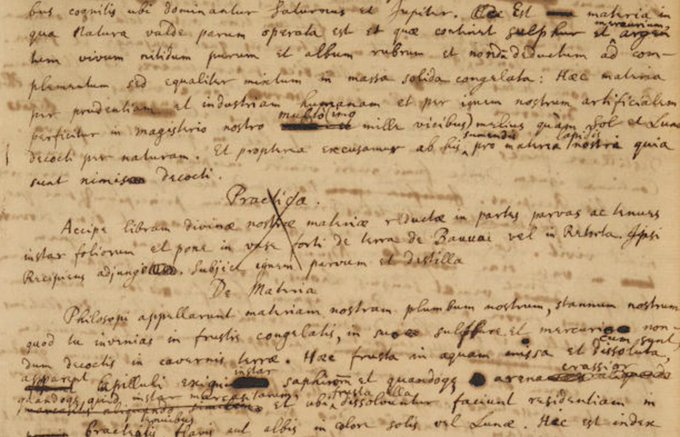 bus cognitis ubi dominantur Saturnus et Jupiter. Est materia in
qua Natura valde parum operata est et quæ continet sulphur et mercurium, argen
tum vivum nitidum purum et album rubrum et nondum deductum ad com-
plementum sed equaliter mixtum in massa solida congelata: Hæc materia
per prudentiam et industriam humanam et per ignem nostrum artificialem
perficitur in magisterio nostro mille vicibus) melius quam Sol et Luna
decocti per naturam. Et propterea excusamur ab his sumendis pro materia lapidis nostri quia
sunt nimis decocti.
Practica.
Accipe libram divinæ nostræ materiæ reductæ in partes parvas ac tenues
instar foliorum et pone in vase forti de terra de Bauvac vel in Retorta. Ipsi
Recipiens adjungito. Subjice ignem parvum et distilla
De Materia
Philosophi appellarunt materiam nostram plumbum nostrum, stannum nostrum
quod tu invenias in frustis congelatis, in suo sulphure et mercurio non-
dum decoctis in cavernis terræ. Hæc frusta in aquam missa et cum sunt dissoluta,
apparent capilluli exigui instar saphirorum et quandoque arena crassior
quandoque instar
et ubi frusta illa dissolvuntur faciunt residentiam in
bracteis flavis aut albis in colore solis vel Lunæ. Hæc est index